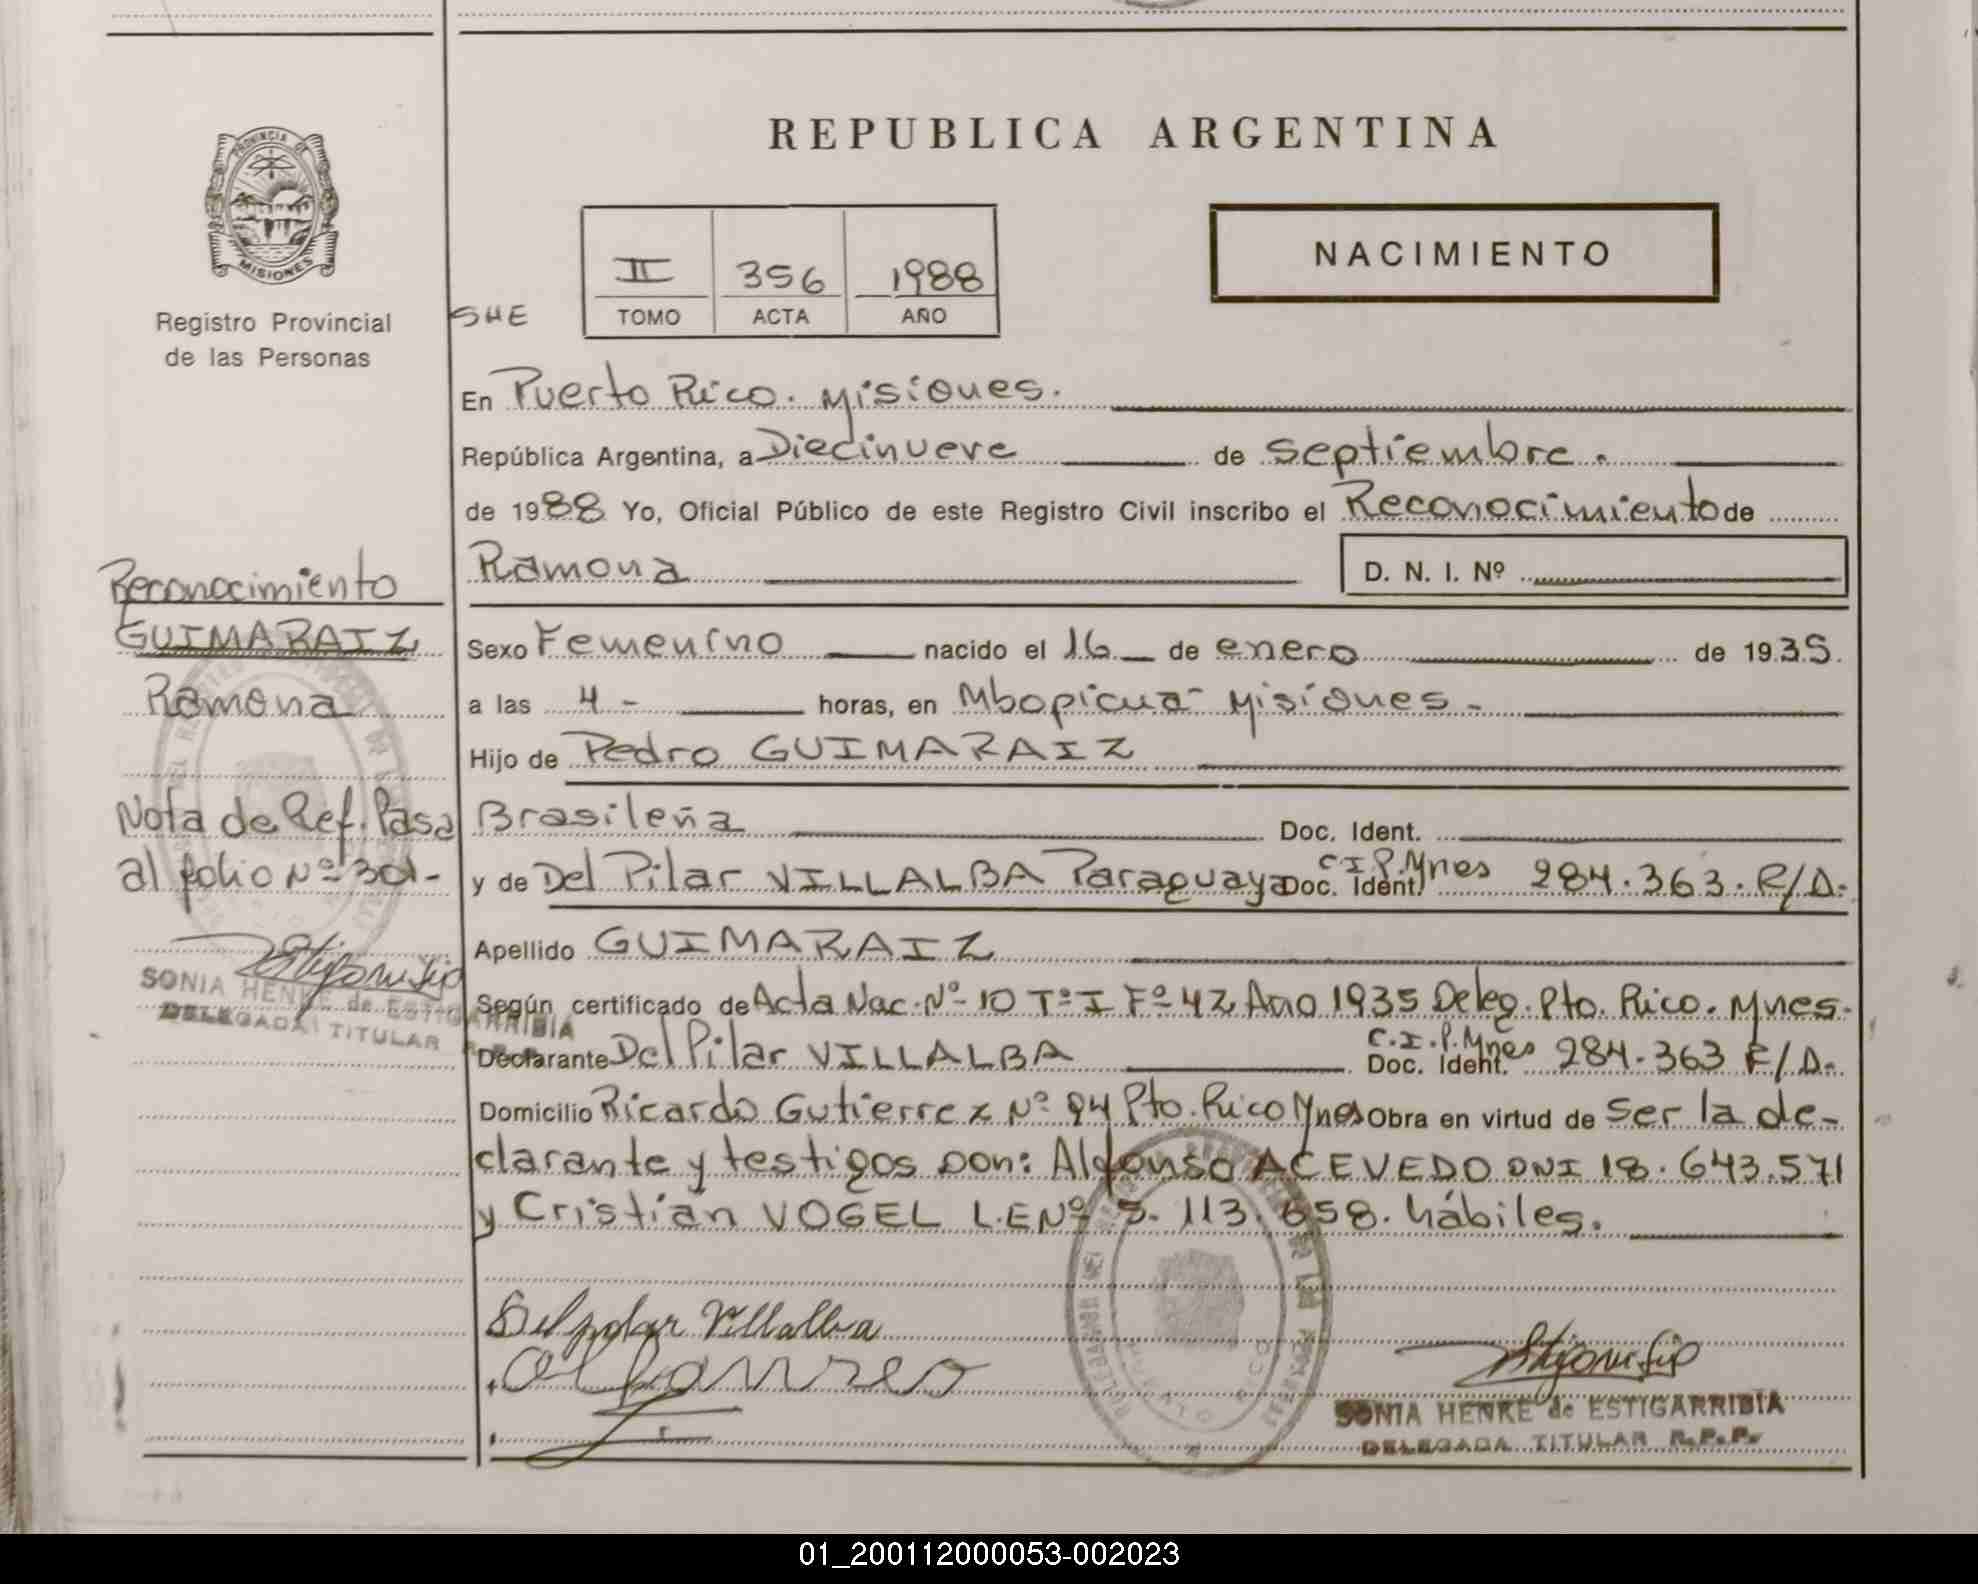 REPUBLICA ARGENTINA
PROVINCIA DE
MISIONES
Registro Provincial
de las Personas
SHE
II 356 1988
TOMO ACTA AÑO
NACIMIENTO
En Puerto Rico. Misiones.
República Argentina, a Diecinueve de septiembre.
de 1988 Yo, Oficial Público de este Registro Civil inscribo el Reconocimiento de
Ramona D. N. I. Nº
Sexo Femenino nacido el 16 de enero de 1935.
a las 4 - horas, en Mbopicua - Misiones -
Hijo de Pedro GUIMARAIZ
Brasileña Doc. Ident.
y de Del Pilar VILLALBA Paraguaya Doc. Ident. C.I.P.Mnes 284.363. R/D.
Apellido GUIMARAIZ
Según certificado de Acta Nac. Nº 10 Tº I Fº 42 Año 1935 Deleg. Pto. Rico. Mnes.
Declarante Del Pilar VILLALBA Doc. Ident. C.I.P.Mnes 284.363 R/D.
Domicilio Ricardo Gutierrez Nº 94 Pto. Rico Mnes Obra en virtud de ser la de-
clarante y testigos Don: Alfonso ACEVEDO DNI 18.643.571
y Cristián VOGEL L.E Nº 5.113.658. hábiles.
Delpilar Villalba
SONIA HENKE de ESTIGARRIBIA
DELEGADA TITULAR R.P.P.
Reconocimiento
GUIMARAIZ
Ramona
Nota de Ref. Pasa
al folio Nº 301-
SONIA HENKE de ESTIGARRIBIA
DELEGADA TITULAR
01_200112000053-002023